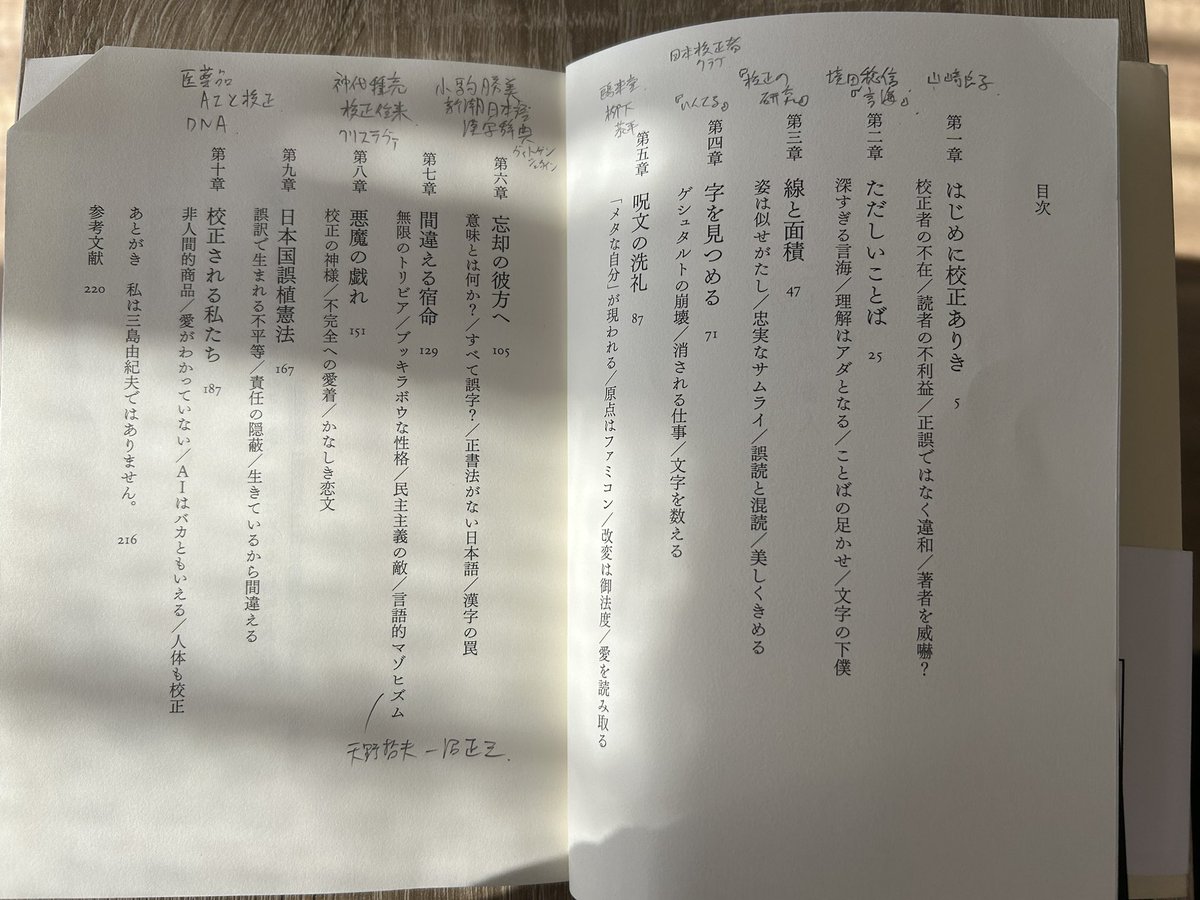 目次
第一章 はじめに校正ありき 5
校正者の不在／読者の不利益／正誤ではなく違和／著者を威嚇？
第二章 ただしいことば 25
深すぎる言海／理解はアダとなる／ことばの足かせ／文字の下僕
第三章 線と面積 47
姿は似せがたし／忠実なサムライ／誤読と混読／美しくきめる
第四章 字を見つめる 71
ゲシュタルトの崩壊／消される仕事／文字を数える
第五章 呪文の洗礼 87
「メタな自分」が現われる／原点はファミコン／改変は御法度／愛を読み取る
山崎良子
境田稔信
『言海』
『校正の
研究』
日本校正者
クラブ
『いんてる』
鴎来堂
柳下
恭平
第六章 忘却の彼方へ 105
意味とは何か？／すべて誤字？／正書法がない日本語／漢字の罠
第七章 間違える宿命 129
無限のトリビア／ブッキラボウな性格／民主主義の敵／言語的マゾヒズム
第八章 悪魔の戯れ 151
校正の神様／不完全への愛着／かなしき恋文
第九章 日本国誤植憲法 167
誤訳で生まれる不平等／責任の隠蔽／生きているから間違える
第十章 校正される私たち 187
非人間的商品／愛がわかっていない／ＡＩはバカともいえる／人体も校正
あとがき 私は三島由紀夫ではありません。 216
参考文献 220
小駒勝美
新潮日本語
漢字辞典
ヴィトゲン
シュタイン
神代種亮
校正往来
クリステヴァ
医薬品
AIと校正
DNA
天野哲夫 ー 沼正三